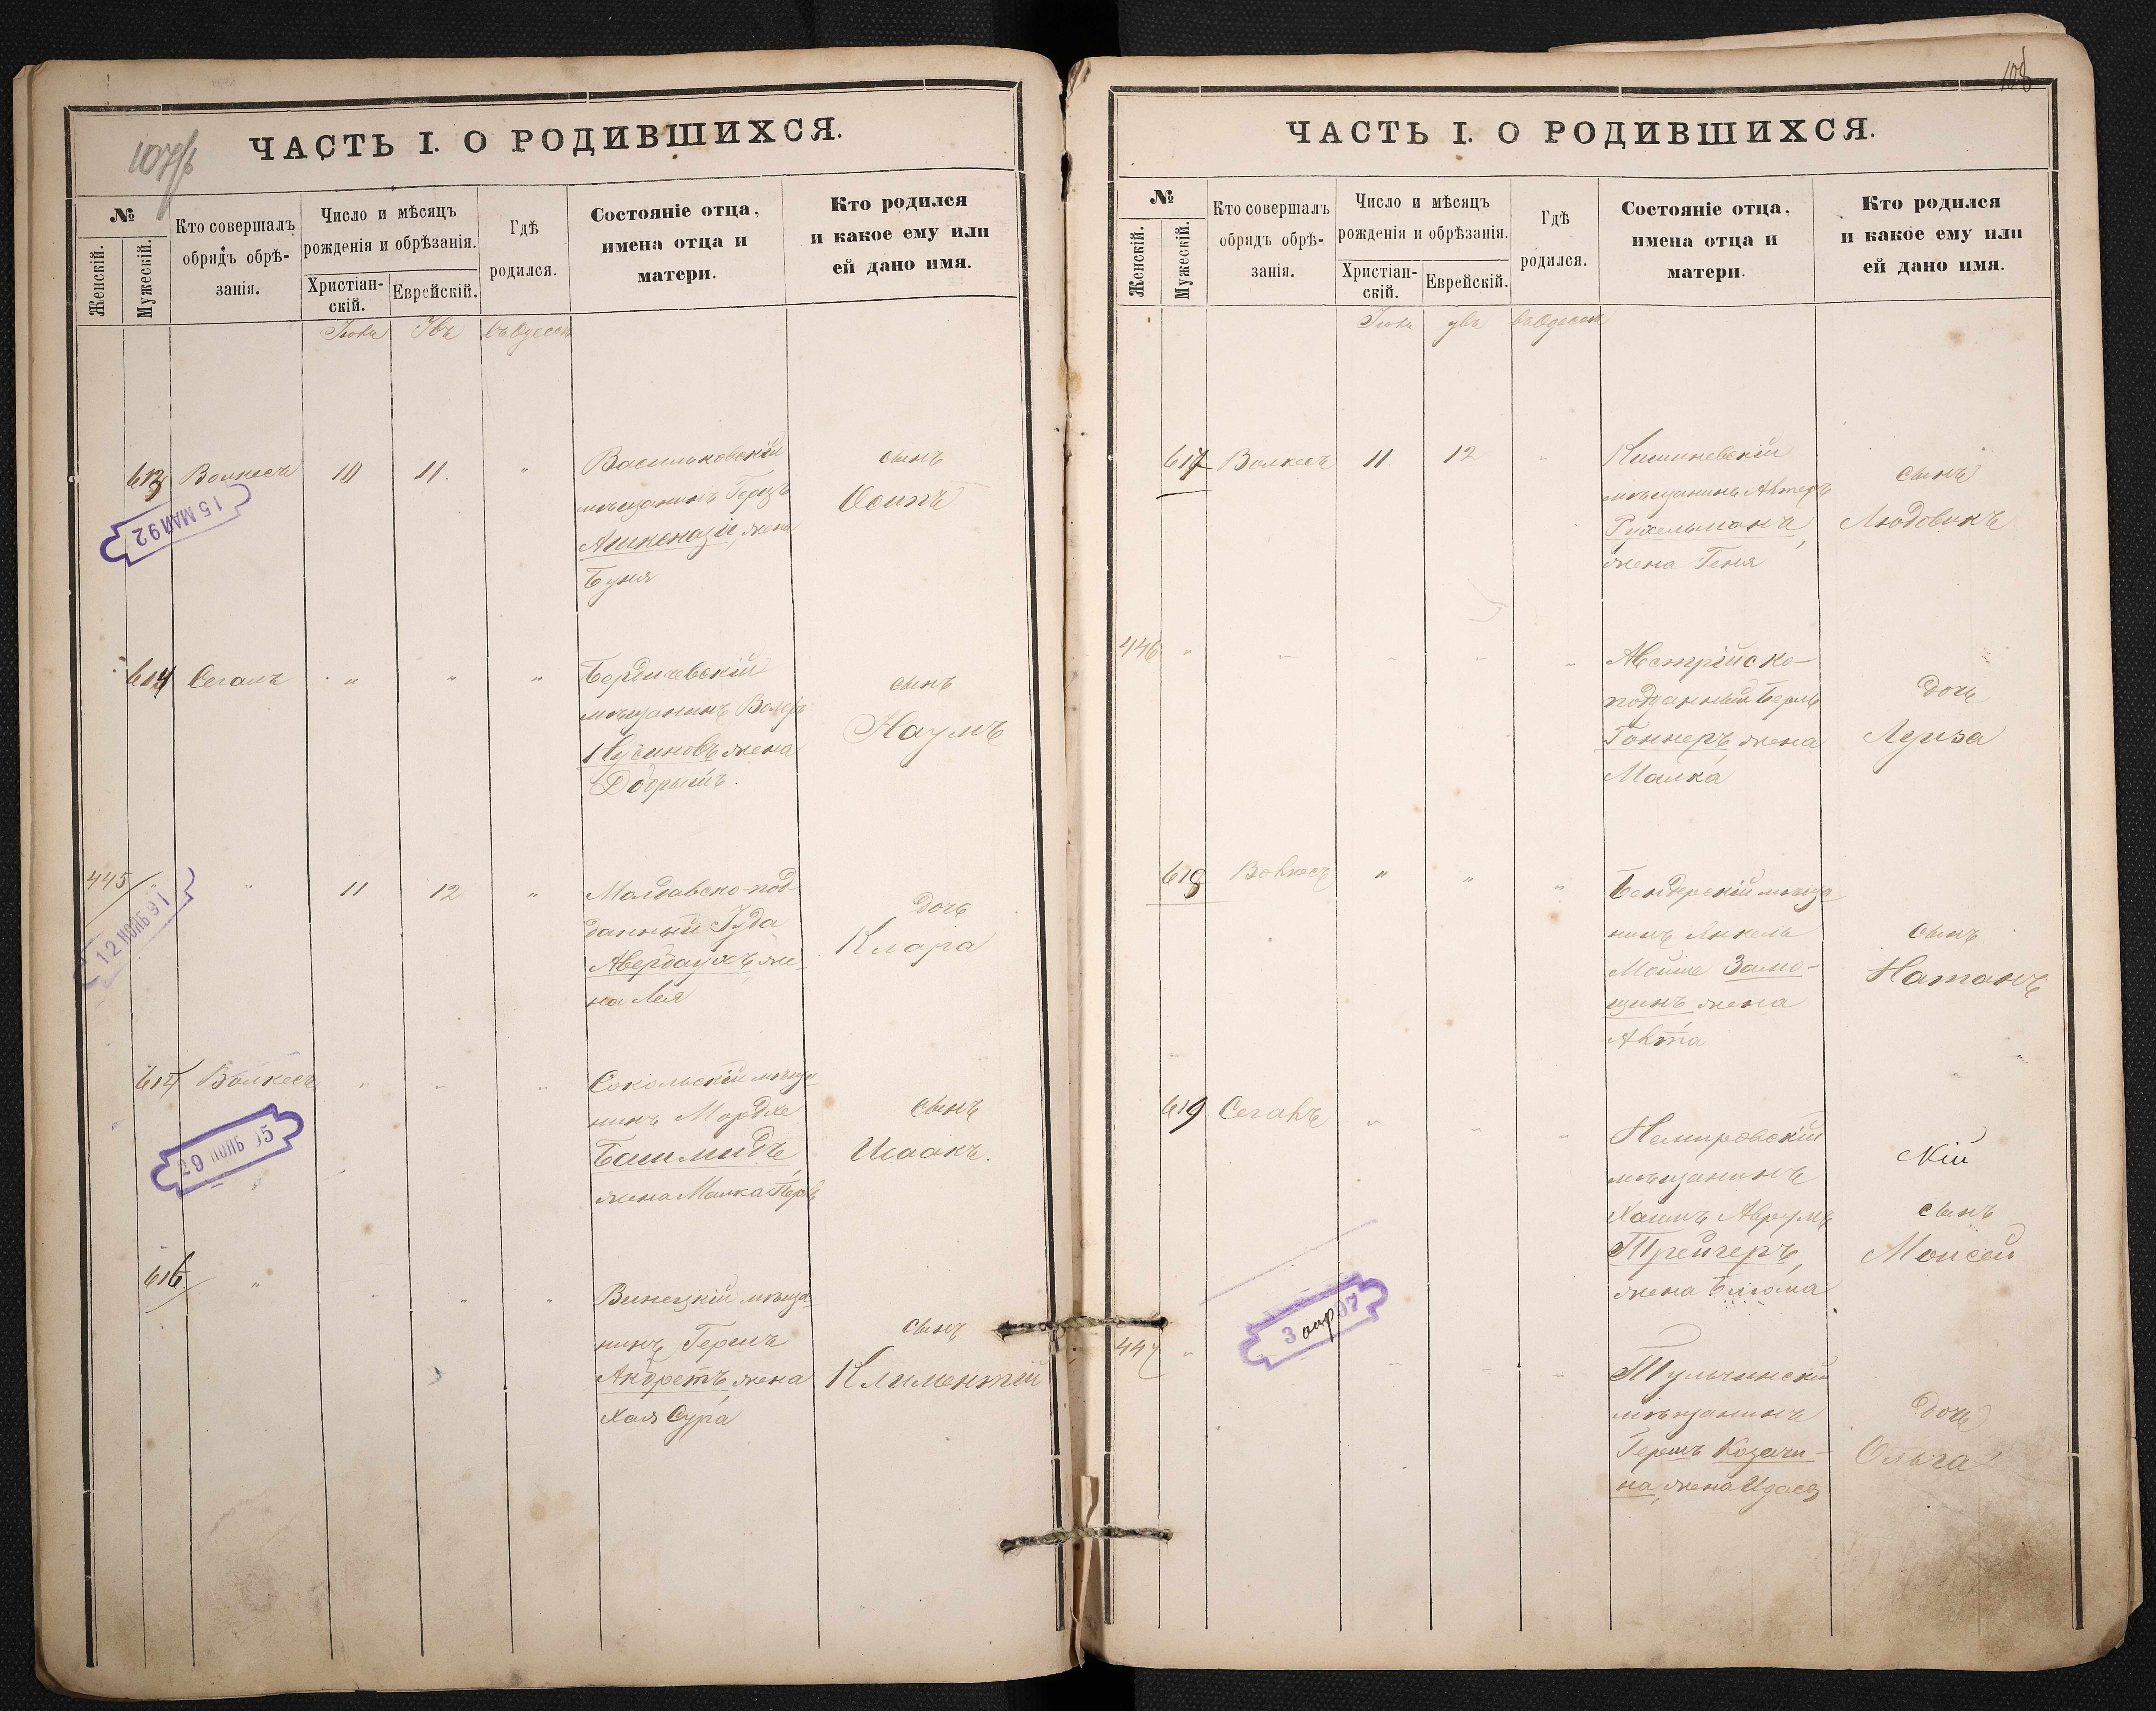 107/б
ЧАСТЬ I. О РОДИВШИХСЯ.
№
Женскій.
Мужескій.
Кто совершалъ
обрядъ обрѣ-
занія.
Число и мѣсяцъ
рожденія и обрѣзанія.
Христіан-
скій.
Еврейскій.
Гдѣ
родился.
Состояніе отца,
имена отца и
матери.
Кто родился
и какое ему или
ей дано имя.
въ Одессѣ
613 Волкесъ 10 11 "
Васильковскій
мѣщанинъ Герзъ
Ашкенази, жена
Буня
сынъ
Осипъ
15 МАЙ 92
614 Сегалъ " " "
Бердичевскій
мѣщанинъ
Нусиновъ жена
сынъ
Наумъ
445 " " 11 12 "
Молдавско-под
данный Іуда
Авербаухъ же-
на Лея
дочь
Клара
12 НОЯБ 91
615 Волкесъ " " "
Сокольскій мѣща
нинъ Мордхе
Башмидъ
жена Малка Перль
сынъ
Исаакъ.
29 НОЯБ 95
616 " " "
Винецкій мѣща
нинъ Гершъ
жена
Хая Сура
сынъ
Климентій
108
ЧАСТЬ I. О РОДИВШИХСЯ.
№
Женскій.
Мужескій.
Кто совершалъ
обрядъ обрѣ-
занія.
Число и мѣсяцъ
рожденія и обрѣзанія.
Христіан-
скій.
Еврейскій.
Гдѣ
родился.
Состояніе отца,
имена отца и
матери.
Кто родился
и какое ему или
ей дано имя.
въ Одессѣ
617 Волкесъ 11 12 "
Кишиневскій
мѣщанинъ
жена Геня
сынъ
Людовикъ
446 " " " " "
Австрійско-
подданный Берль
Гоннеръ, жена
Малка
дочь
Луиза
618 Волкесъ " " "
Бендерскій мѣща
нинъ Янкель
Мойше Замо-
щинъ жена
сынъ
Натанъ
619 Сегалъ " " "
Немировскій
мѣщанинъ
Хаимъ Аврумъ
Трейгеръ,
жена Блюма
скій
сынъ
Моисей
3 апр 97
447 " " " "
Тульчинскій
мѣщанинъ
Гершъ Козачи-
на, жена
дочь
Ольга